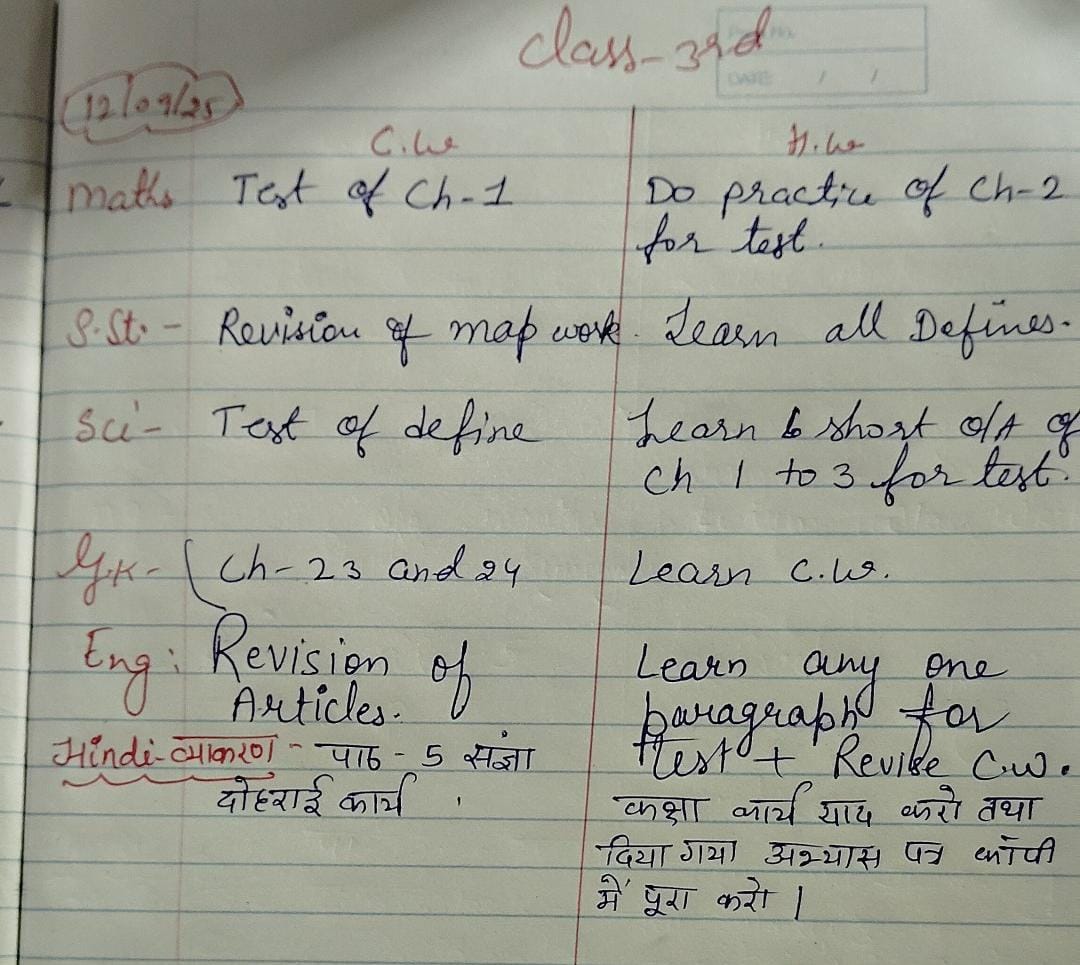 Class-3rd
DATE / /
12/09/25
C.W H.W
Maths Test of Ch-1 Do practice of Ch-2
for test.
S.St. - Revision of map work. Learn all Defines.
Sci - Test of define Learn 6 short Q/A of
Ch 1 to 3 for test.
G.K - Ch-23 and 24 Learn C.W.
Eng: Revision of Learn any one
Articles. paragraph for
test + Revise C.W.
Hindi-व्याकरण - पाठ - 5 संज्ञा
दोहराई कार्य । कक्षा कार्य याद करो तथा
दिया गया अभ्यास पत्र कॉपी
में पूरा करो |